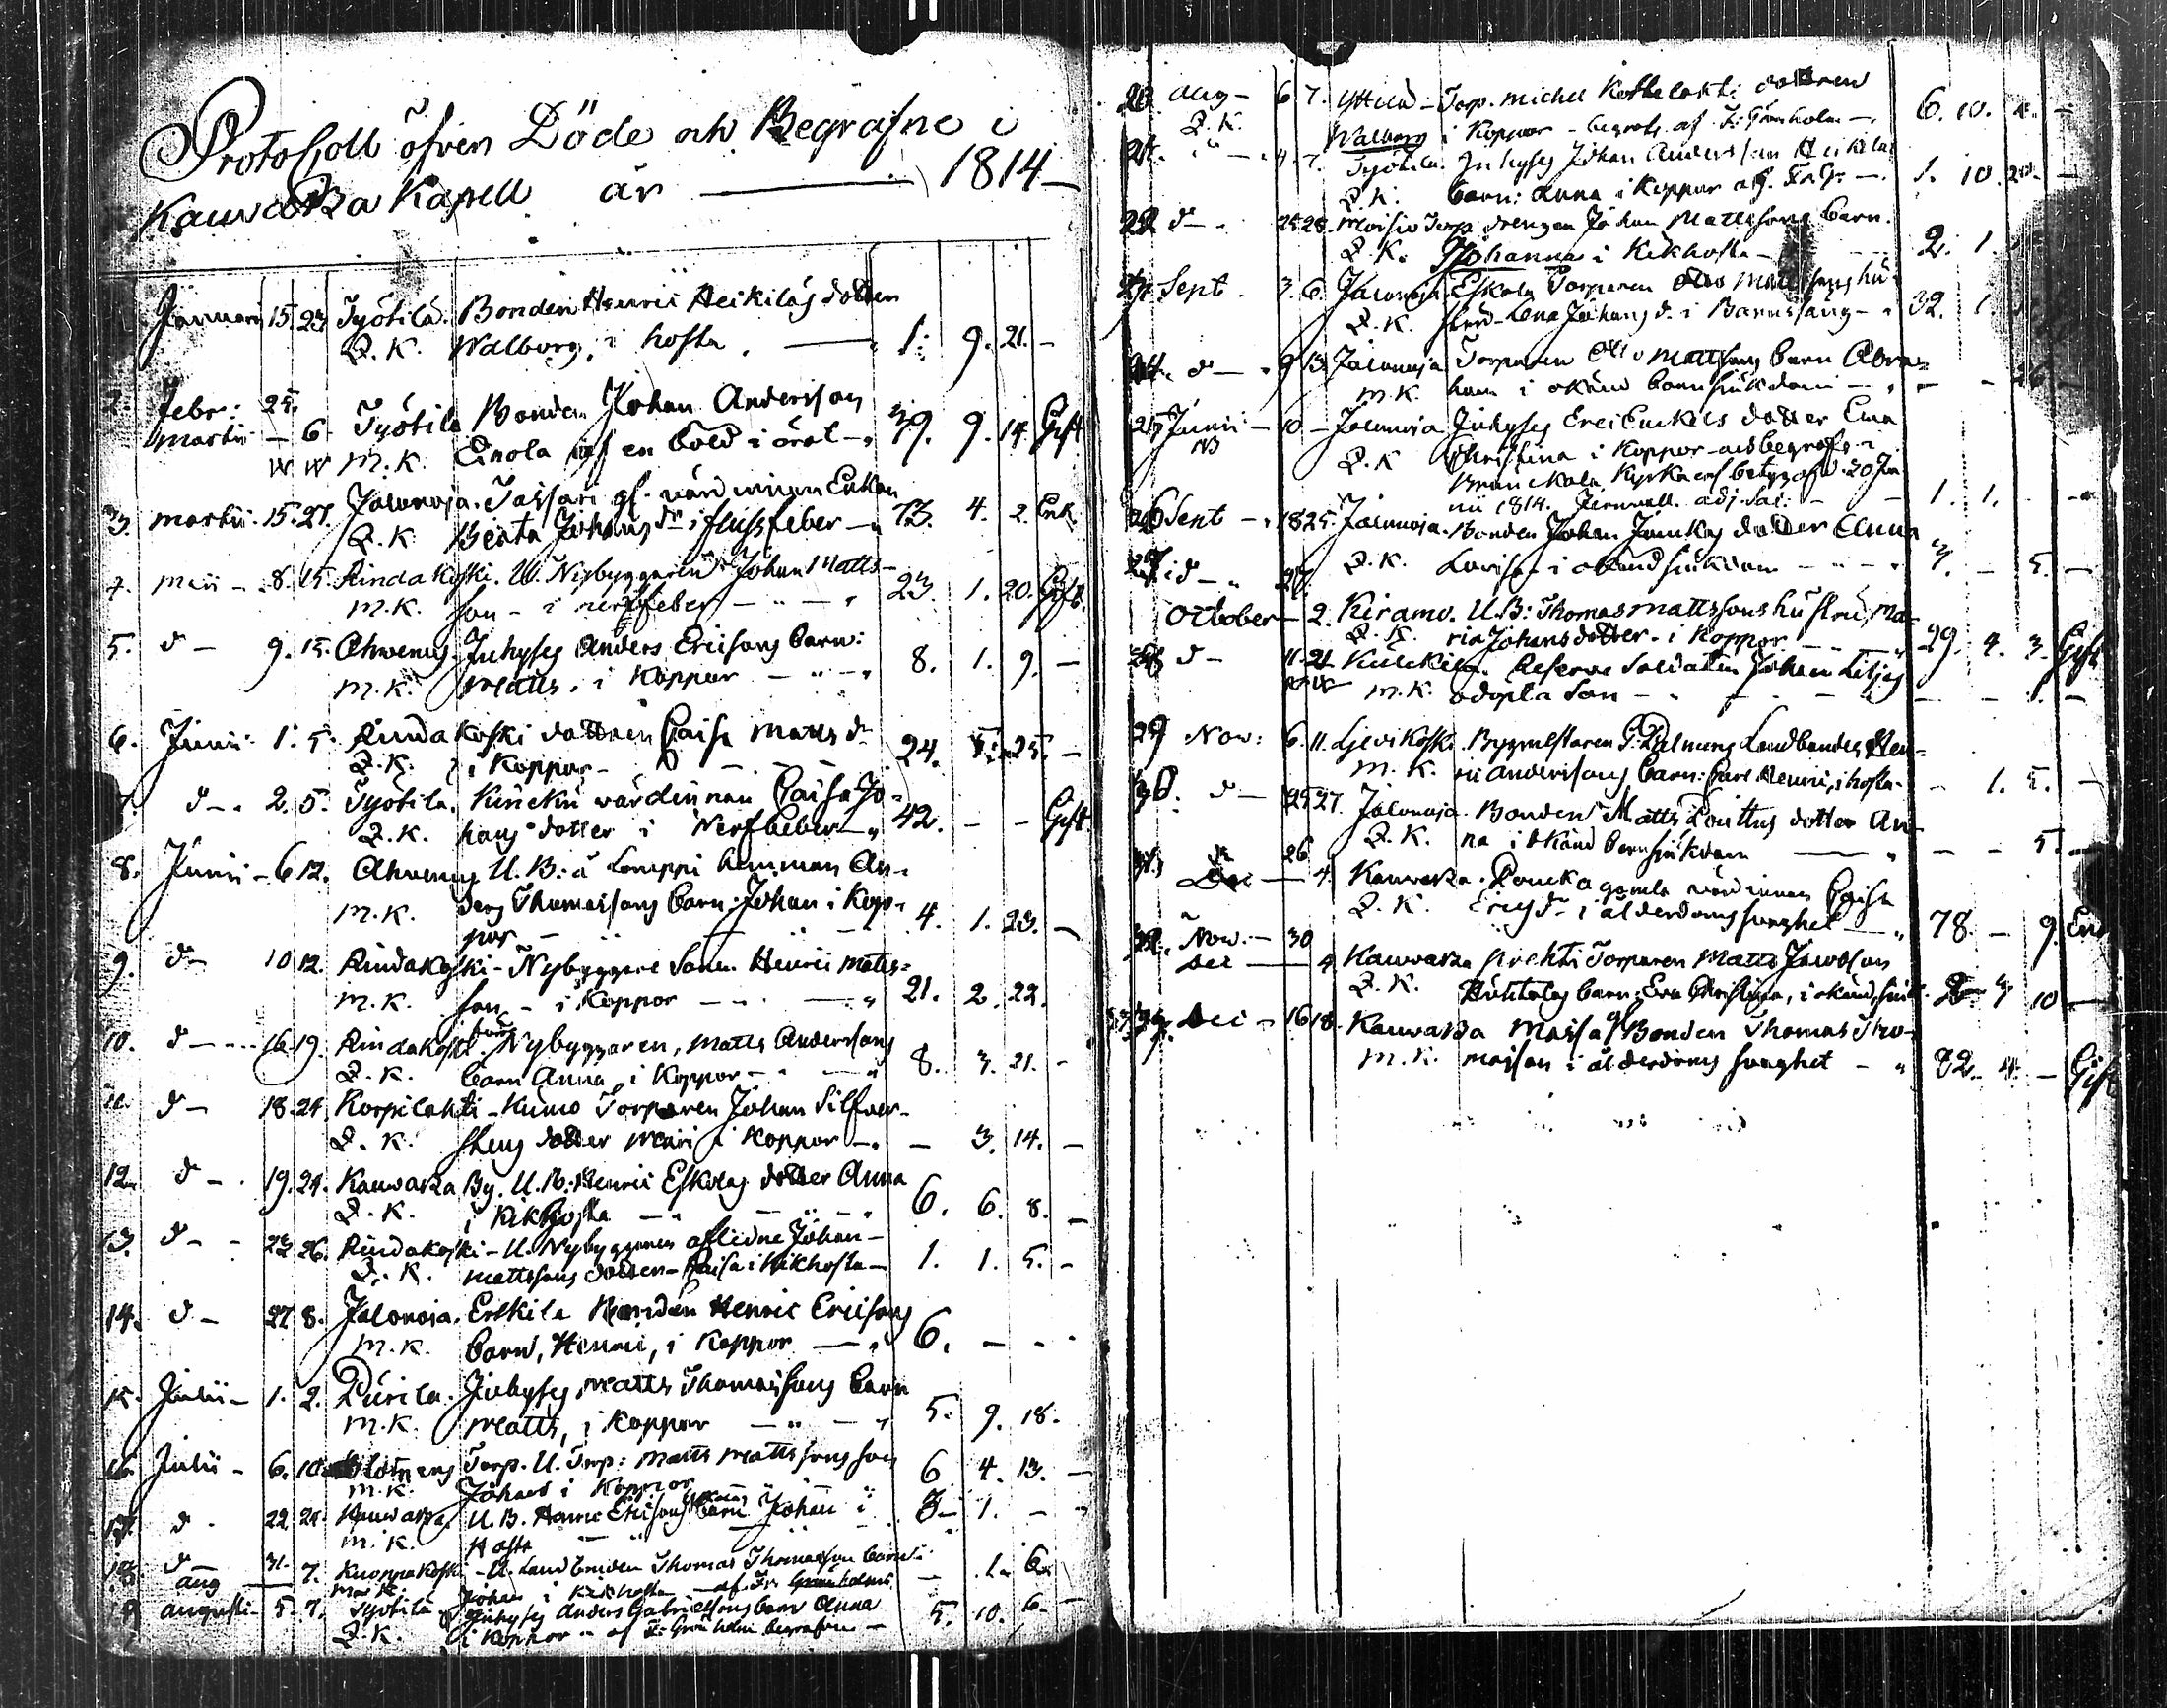 Protokoll öfver Döde och Begrafne i
Kauwatsa Kapell år — 1814 —
Januarii 15. 23. Työtilä. Bonden Henric Heikiläs dotter
Q.K. Walborg, i hosta. — 1. 9. 21. —
2. Febr: 25.
Martii — 6. Työtilä Bonden Johan Andersson
M.K. Einola af en böld i örat — 39. 9. 14. Gift
3. Martii. 15. 27. Jalonoja. Jassari gl. värdinnan Enkan
Q.K. Beata Johans dr i flussfeber — 73. 4. 2. Enk.
4. Maii — 8. 15. Rindakoski. U. Nybyggaren Johan Matts-
M.K. son — i nerffeber — 23. 1. 20. Gift.
5. d — 9. 15. Ahvenus Inhyses Anders Ericsons barn:
M.K. Matts, i Koppor — 8. 1. 9. —
6. Junii 1. 5. Rindakoski dottren Caisa Matts dr
Q.K. i Koppor — 24. 5. 25. —
7. d — 2. 5. Työtilä. Kuncku wärdinnan Caisa Jo-
Q.K. hans dotter i Nerffeber — 42. — — Gift
8. Junii — 6 12. Ahvenus U.B: å Lamppi hemman An-
M.K. ders Thomassons barn: Johan i Kop-
por — 4. 1. 23. —
9. d — 10 12. Rindakoski — Nybyggare Sonen Henric Matts-
M.K. son — i Koppor — 21. 2. 22.
10. d — 16 19. Rindakoski. Nybyggaren, Matts Anderssons
Q.K. barn Anna, i Koppor — 8. 3. 21. —
11. d — 18. 24. Korpilahti — Kumo Torparen Johan Silfver-
Q.K. stens dotter Mari i Koppor — — 3. 14. —
12. d — 19. 24. Kauwatsa By. U.B: Henric Eskolas dotter Anna
Q.K. i Kikhosta — 6. 6. 8. —
13. d — 23 26. Rindakoski — U. Nybyggaren aflidne Johan
Q.K. Mattssons dotter — Caisa i Kikhosta — 1. 1. 5. —
14. d — 27 8. Jalonoja. Erkkilä Bonden Henric Ericsons
M.K. barn, Henric, i Koppor — 6. — —
15. Julii — 1. 2. Puurila. Inhyses Matts Thomassons barn
M.K. Matts, i Koppor — 5. 9. 18.
16. Julii — 6. 10. Torp. U. Torp: Matts Mattssons son
M.K. Johan i Koppor 6 4. 13. —
17. d 22 24. Kauwatsa U.B. Ericsons barn Johan i
M.K. Hosta — 3 — 1. —
18. d 31.
aug — 7. Kuoppakoski — U. Landbonden Thomas Thomasson barn
Johan i Kikhosta — af Grönholm — 1. 6.
19 augusti — 5. 7. Työtilä Inhyses Anders Gabrielssons barn Anna
Q.K. i Koppor — af Grönholm begrafven — 5. 10. 6. —
20 Aug — 6 7. Torp. Michel dottren
Q.K. Walborg i Koppor — begrafs af Grönholm — 6. 10. 4. —
21. — 4. 7. Työtilä. Inhyses Johan Andersson Heikilas
Q.K. barn: Anna i Koppor af — 1. 10. 20. —
22 d — 25 28. Moisio Torp drengen Johan Mattssons barn.
Q.K. Johanna i Kikhosta — 2. 1.
23 Sept — 3. 6. Jalonoja Eskola Torparen Otto Mattssons hu-
Q.K. stru — Lena Johans d. i Barnsäng — 32. 1.
24. d — 9 13. Jalonoja Torparen Otto Mattssons barn Abra-
M.K. ham i okänd barnsjukdom — — — 26 —
25 Junii — 10 — Jalonoja Inhyses Eric Enckels dotter Eva
NB Q.K Christina i Koppor — begrafs
Kyrka enl betyg af d. 20 Ju-
nii 1814. adj. — 1. 1. —
26 Sept — 18 25. Jalonoja. Bonden Johan dotter Anna
Q.K. Lovisa — i okänd sjukdom — 3. — 5. —
27 d — 28
October — 2. Kiramo. U.B: Thomas Mattssons hustru, Ma-
Q.K. ria Johans dotter — i Koppor — 29. 4. 3. Gift
28 d — 11. 21 Reserve Soldaten Johan Liljas
M.K. odöpta Son — — — 1. —
29 Nov: 6. 11. Ljevikoski. Byggmästaren Landbondes Hen-
M.K. ric Anderssons barn: Carl Henric, i hosta — — 1. 5. —
30. d — 25 27. Jalonoja. Bonden Matts dotter An-
Q.K. na i okänd barnsjukdom — — — 5. —
31. d 26
Dec — 4. Kauwatsa. Poucka gamla värdinnan Caisa
Q.K. Erics dr i ålderdoms svaghet — 78 — 9. Enk
32. Now. — 30
Dec — 4 Kauwatsa Torparen Matts Jacobson
Q.K. barn: Eva Christina, i okänd sjuk. 2 — 7 10 —
33 Dec — 16 18. Kauwatsa Massa gl Bonden Thomas Tho-
M.K. masson i ålderdoms svaghet — 72. 4. — Gift